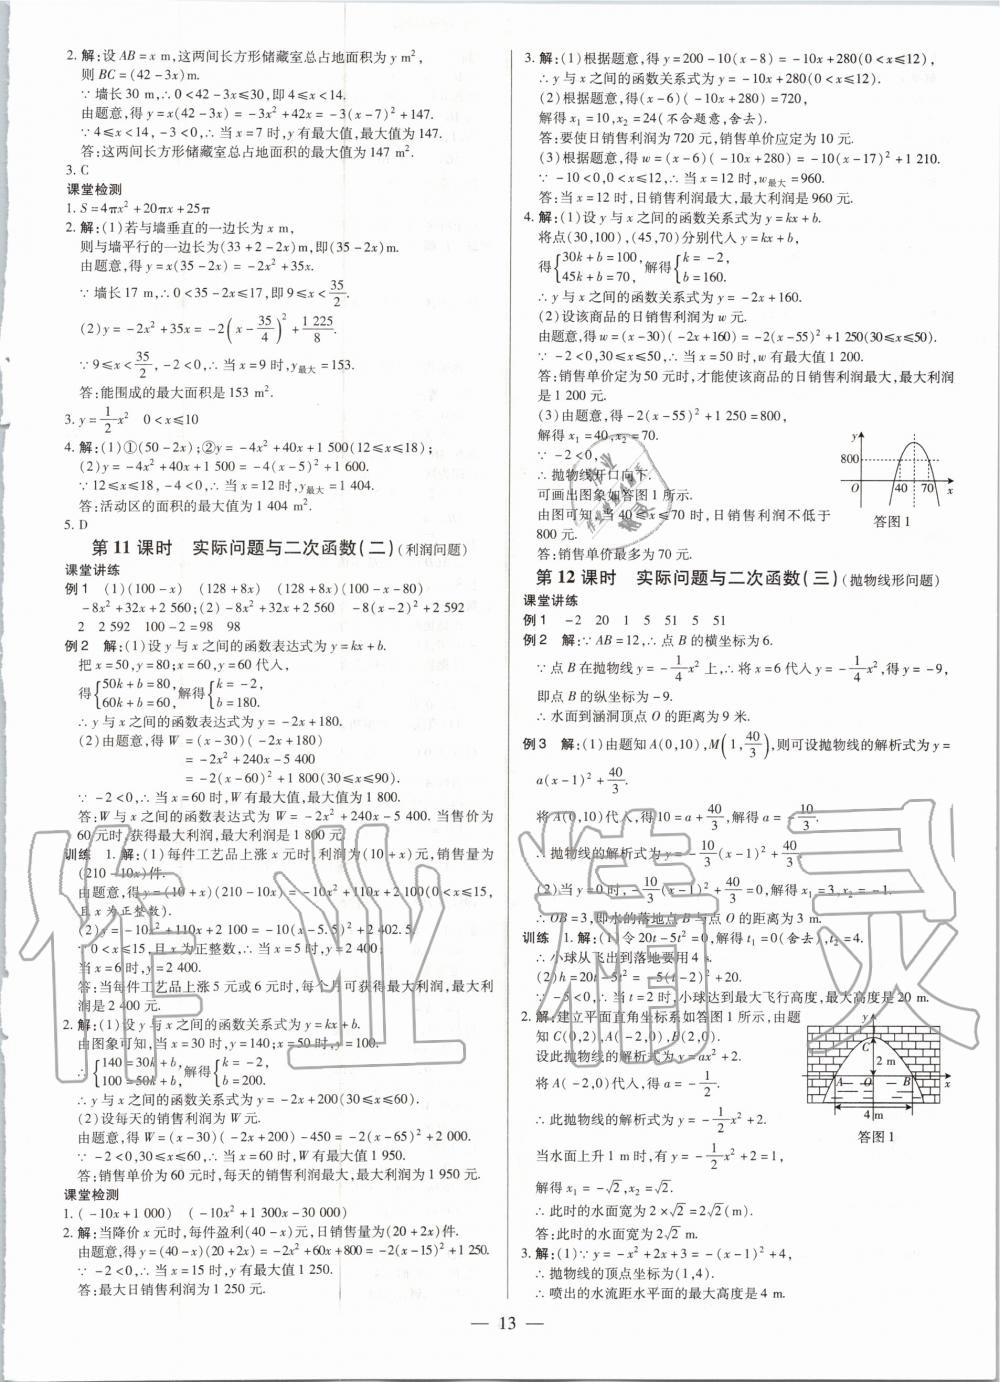 2. 解:设 AB=x m,这两间长方形储藏室总占地面积为 y m²,
则 BC=(42-3x)m.
∵墙长 30 m,∴0<42-3x≤30,即 4≤x<14.
由题意,得 y=x(42-3x)=-3x²+42x=-3(x-7)²+147.
∵4≤x<14,-3<0,∴当 x=7 时,y 有最大值,最大值为 147.
答:这两间长方形储藏室总占地面积的最大值为 147 m².
3. C
课堂检测
1. S=4πx²+20πx+25π
2. 解:(1)若与墙垂直的一边长为 x m,
则与墙平行的一边长为(33+2-2x)m,即(35-2x)m.
由题意,得 y=x(35-2x)=-2x²+35x.
∵墙长 17 m,∴0<35-2x≤17,即 9≤x<35/2.
(2)y=-2x²+35x=-2(x-35/4)²+1 225/8.
∵9≤x<35/2,-2<0,∴当 x=9 时,y最大=153.
答:能围成的最大面积是 153 m².
3. y=1/2x² 0<x≤10
4. 解:(1)①(50-2x);②y=-4x²+40x+1 500(12≤x≤18);
(2)y=-4x²+40x+1 500=-4(x-5)²+1 600.
∵12≤x≤18,-4<0,∴当 x=12 时,y最大=1 404.
答:活动区的面积的最大值为 1 404 m².
5. D
第 11 课时 实际问题与二次函数(二)(利润问题)
课堂讲练
例 1 (1)(100-x) (128+8x) (128+8x)(100-x-80)
-8x²+32x+2 560;(2)-8x²+32x+2 560 -8(x-2)²+2 592
2 2 592 100-2=98 98
例 2 解:(1)设 y 与 x 之间的函数表达式为 y=kx+b.
把 x=50,y=80;x=60,y=60 代入,
得{50k+b=80, 60k+b=60,解得{k=-2, b=180.
∴y 与 x 之间的函数表达式为 y=-2x+180.
(2)由题意,得 W=(x-30)(-2x+180)
=-2x²+240x-5 400
=-2(x-60)²+1 800(30≤x≤90).
∵-2<0,∴当 x=60 时,W 有最大值,最大值为 1 800.
答:W 与 x 之间的函数表达式为 W=-2x²+240x-5 400. 当售价为
60 元时,获得最大利润,最大利润是 1 800 元.
训练 1. 解:(1)每件工艺品上涨 x 元时,利润为(10+x)元,销售量为
(210-10x)件.
由题意,得 y=(10+x)(210-10x)=-10x²+110x+2 100(0<x≤15,
且 x 为正整数).
(2)y=-10x²+110x+2 100=-10(x-5.5)²+2 402.5.
∵0<x≤15,且 x 为正整数,∴当 x=5 时,y=2 400;
当 x=6 时,y=2 400.
答:当每件工艺品上涨 5 元或 6 元时,每个月可获得最大利润,最大利
润是 2 400 元.
2. 解:(1)设 y 与 x 之间的函数关系式为 y=kx+b.
由图象可知,当 x=30 时,y=140;x=50 时,y=100.
∴{140=30k+b, 100=50k+b,解得{k=-2, b=200.
∴y 与 x 之间的函数关系式为 y=-2x+200(30≤x≤60).
(2)设每天的销售利润为 W 元.
由题意,得 W=(x-30)(-2x+200)-450=-2(x-65)²+2 000.
∵-2<0,30≤x≤60,∴当 x=60 时,W 有最大值 1 950.
答:销售单价为 60 元时,每天的销售利润最大,最大利润为 1 950 元.
课堂检测
1. (-10x+1 000) (-10x²+1 300x-30 000)
2. 解:当降价 x 元时,每件盈利(40-x)元,日销售量为(20+2x)件.
由题意,得 y=(40-x)(20+2x)=-2x²+60x+800=-2(x-15)²+1 250.
∵-2<0,∴当 x=15 时,y 有最大值 1 250.
答:最大日销售利润为 1 250 元.
3. 解:(1)根据题意,得 y=200-10(x-8)=-10x+280(0<x≤12),
∴y 与 x 之间的函数关系式为 y=-10x+280(0<x≤12).
(2)根据题意,得(x-6)(-10x+280)=720,
解得 x₁=10,x₂=24(不合题意,舍去).
答:要使日销售利润为 720 元,销售单价应定为 10 元.
(3)根据题意,得 w=(x-6)(-10x+280)=-10(x-17)²+1 210.
∵-10<0,0<x≤12,∴当 x=12 时,w最大=960.
答:当 x=12 时,日销售利润最大,最大利润是 960 元.
4. 解:(1)设 y 与 x 之间的函数关系式为 y=kx+b.
将点(30,100),(45,70)分别代入 y=kx+b,
得{30k+b=100, 45k+b=70,解得{k=-2, b=160.
∴y 与 x 之间的函数关系式为 y=-2x+160.
(2)设该商品的日销售利润为 w 元.
由题意,得 w=(x-30)(-2x+160)=-2(x-55)²+1 250(30≤x≤50).
∵-2<0,30≤x≤50,∴当 x=50 时,w 有最大值 1 200.
答:销售单价定为 50 元时,才能使该商品的日销售利润最大,最大利润
是 1 200 元.
(3)由题意,得-2(x-55)²+1 250=800,
解得 x₁=40,x₂=70.
∵-2<0,
∴抛物线开口向下.
可画出图象如答图 1 所示.
由图可知,当 40≤x≤70 时,日销售利润不低于
800 元.
答:销售单价最多为 70 元.
y
800
O 40 70 x
答图 1
第 12 课时 实际问题与二次函数(三)(抛物线形问题)
课堂讲练
例 1 -2 20 1 5 51 5 51
例 2 解:∵AB=12,∴点 B 的横坐标为 6.
∵点 B 在抛物线 y=-1/4x² 上,∴将 x=6 代入 y=-1/4x²,得 y=-9,
即点 B 的纵坐标为-9.
∴水面到涵洞顶点 O 的距离为 9 米.
例 3 解:(1)由题知 A(0,10),M(1,40/3),则可设抛物线的解析式为 y=
a(x-1)²+40/3.
将 A(0,10)代入,得 10=a+40/3,解得 a=-10/3.
∴抛物线的解析式为 y=-10/3(x-1)²+40/3.
(2)当 y=0 时,-10/3(x-1)²+40/3=0,解得 x₁=3,x₂=-1.
∴OB=3,即水的落地点 B 与点 O 的距离为 3 m.
训练 1. 解:(1)令 20t-5t²=0,解得 t₁=0(舍去),t₂=4.
∴小球从飞出到落地要用 4 s.
(2)h=20t-5t²=-5(t-2)²+20.
∵-5<0,∴当 t=2 时,小球达到最大飞行高度,最大高度是 20 m.
2. 解:建立平面直角坐标系如答图 1 所示,由题
知 C(0,2),A(-2,0),B(2,0).
设此抛物线的解析式为 y=ax²+2.
将 A(-2,0)代入,得 a=-1/2.
∴此抛物线的解析式为 y=-1/2x²+2.
当水面上升 1 m 时,有 y=-1/2x²+2=1,
解得 x₁=-√2,x₂=√2.
∴此时的水面宽为 2×√2=2√2(m).
答:此时的水面宽为 2√2 m.
y
C
2 m
A O B x
4 m
答图 1
3. 解:(1)∵y=-x²+2x+3=-(x-1)²+4,
∴抛物线的顶点坐标为(1,4).
∴喷出的水流距水平面的最大高度是 4 m.
— 13 —
作业精灵